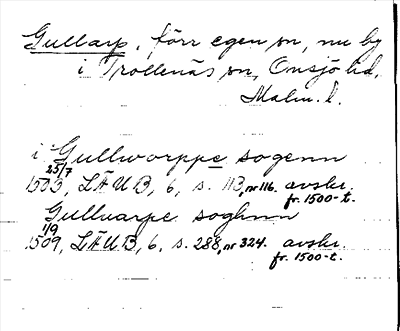 Gullarp, förr egen sn, nu by
i Trollenäs sn, Onsjö hd,
Malm. l.
i Gullworppe sogenn
25/7
1503, LÄUB, 6, s. 113, nr 116. avskr.
fr. 1500-t.
Gulluarpe soghnn
1/9
1509, LÄUB, 6, s. 288, nr 324. avskr.
fr. 1500-t.